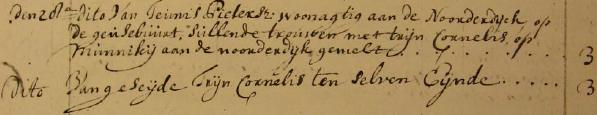 Den 28e Dito Van Teunis Pietersz: woonagtig aan de Noorderdyck op
De geusebuurt, sullende trouwen met trijn Cornelis, op
Munnikij aan de noorderdijk gemelt . . . . . . . . 3
Dito Van geseijde Trijn Cornelis ten selven Eynde . . . . . 3